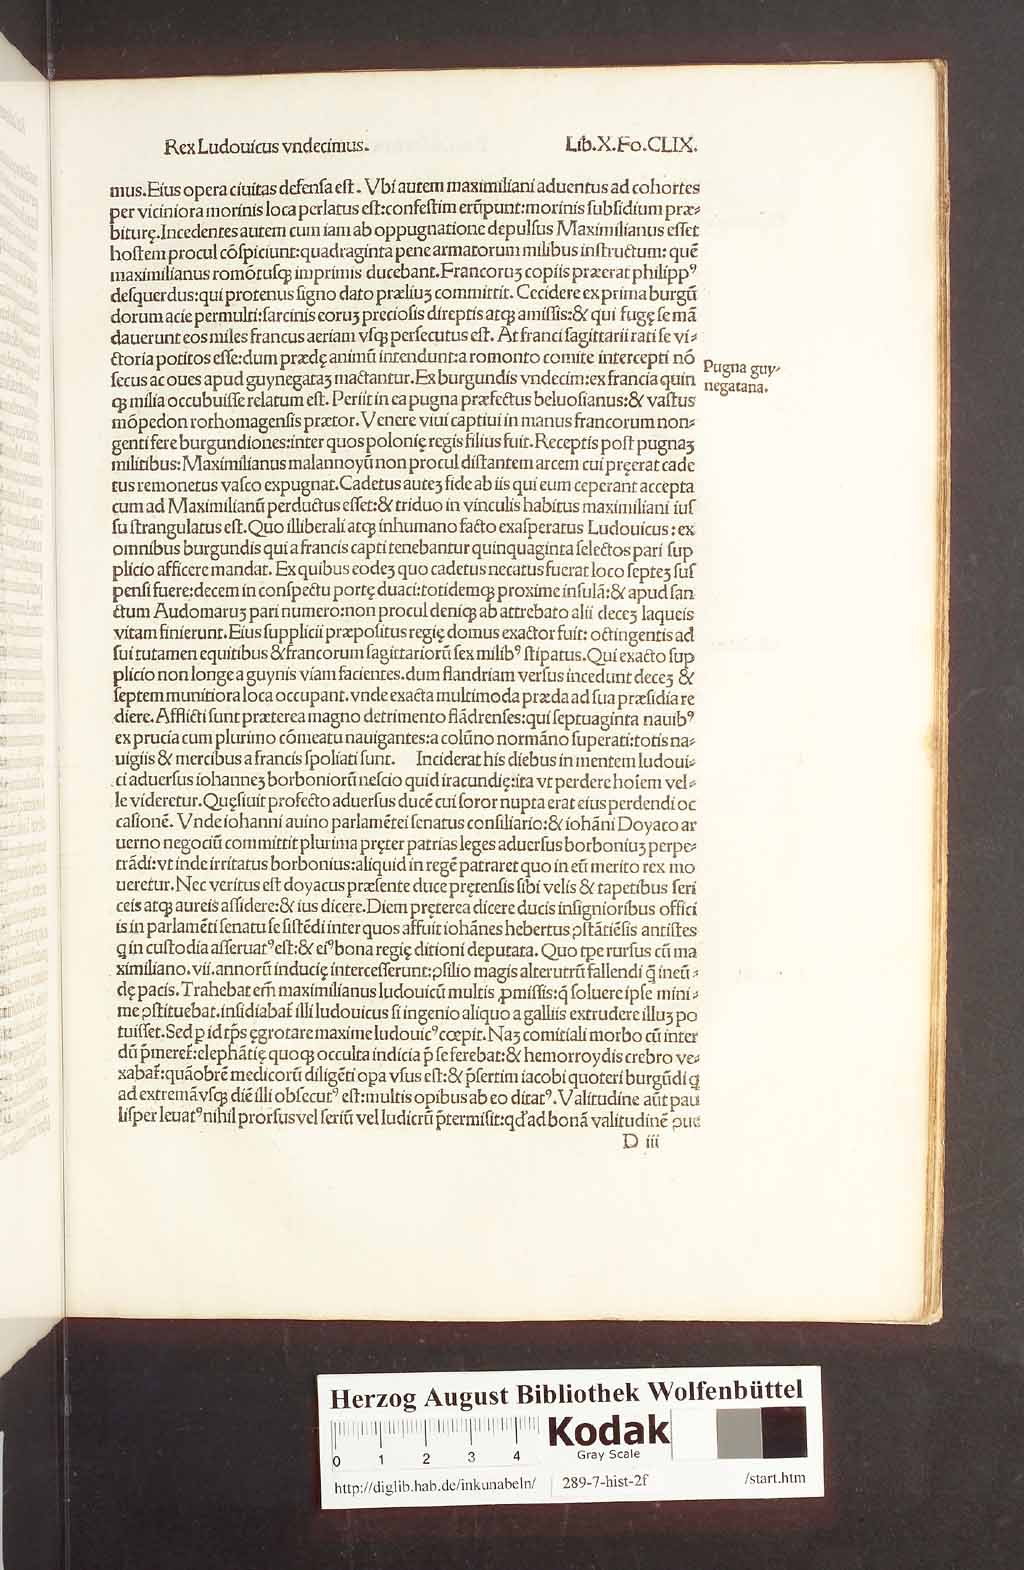 Rex Ludouicus vndecimus. Lib.X.Fo.CLIX.
mus.Eius opera ciuitas defensa est. Vbi autem maximiliani aduentus ad cohortes
per viciniora morinis loca perlatus est:confestim erũpunt:morinis subsidium præ-
biturę.Incedentes autem cum iam ab oppugnatione depulsus Maximilianus esset
hostem procul cõspiciunt:quadraginta pene armatorum milibus instructum: quẽ
maximilianus romõtusqꝫ imprimis ducebant.Francoruꝫ copiis præerat philippꝰ
desquerdus:qui protenus signo dato præliuꝫ committit. Cecidere ex prima burgũ
dorum acie permulti:sarcinis eoruꝫ preciosis direptis atqꝫ amissis:& qui fugę se mã
dauerunt eos miles francus aeriam vsqꝫ persecutus est. At franci sagittarii rati se vi-
ctoria potitos esse:dum prædę animũ intendunt:a romonto comite intercepti nõ
secus ac oues apud guynegataꝫ mactantur.Ex burgundis vndecim:ex francia quin
qꝫ milia occubuisse relatum est. Periit in ea pugna præfectus beluosianus:& vastus
mõpedon rothomagensis prætor. Venere viui captiui in manus francorum non-
genti fere burgundiones:inter quos polonię regis filius fuit. Receptis post pugnaꝫ
militibus: Maximilianus malannoyũ non procul distantem arcem cui pręerat cade
tus remonetus vasco expugnat.Cadetus auteꝫ fide ab iis qui eum ceperant accepta
cum ad Maximilianũ perductus esset:& triduo in vinculis habitus maximiliani ius
su strangulatus est.Quo illiberali atqꝫ inhumano facto exasperatus Ludouicus: ex
omnibus burgundis qui a francis capti tenebantur quinquaginta selectos pari sup
plicio afficere mandat. Ex quibus eodeꝫ quo cadetus necatus fuerat loco septeꝫ sus
pensi fuere:decem in conspectu portę duaci:totidemqꝫ proxime insulã:& apud san
ctum Audomaruꝫ pari numero:non procul deniqꝫ ab attrebato alii deceꝫ laqueis
vitam finierunt.Eius supplicii præpositus regię domus exactor fuit: octingentis ad
sui tutamen equitibus & francorum sagittariorũ sex milibꝰ stipatus. Qui exacto sup
plicio non longe a guynis viam facientes.dum flandriam versus incedunt deceꝫ &
septem munitiora loca occupant.vnde exacta multimoda præda ad sua præsidia re
diere. Afflicti sunt præterea magno detrimento flãdrenses:qui septuaginta nauibꝰ
ex prucia cum plurimo cõmeatu nauigantes:a colũno normãno superati:totis na-
uigiis & mercibus a francis spoliati sunt. Inciderat his diebus in mentem ludoui-
ci aduersus iohanneꝫ borboniorũ nescio quid iracundię:ita vt perdere hoiem vel-
le videretur.Quęsiuit profecto aduersus ducẽ cui soror nupta erat eius perdendi oc
casionẽ. Vnde iohanni auino parlamẽtei senatus consiliario:& iohãni Doyaco ar
uerno negociũ committit plurima pręter patrias leges aduersus borboniuꝫ perpe-
trãdi:vt inde irritatus borbonius:aliquid in regẽ patraret quo in eũ merito rex mo
ueretur. Nec veritus est doyacus præsente duce prętensis sibi velis & tapetibus seri
ceis atqꝫ aureis assidere:& ius dicere.Diem pręterea dicere ducis insignioribus offici
is in parlamẽti senatu se sistẽdi inter quos affuit iohãnes hebertus ꝯstãtiẽsis antistes
q̃ in custodia asseruatꝰ est:& eiꝰ bona regię ditioni deputata. Quo tp̃e rursus cũ ma
ximiliano.vii.annorũ inducię intercesserunt:ꝯsilio magis alterutrũ fallendi q̃ ineũ-
dę pacis. Trahebat em̃ maximilianus ludouicũ multis ꝓmissis:q̃ soluere ipse mini-
me ꝯstituebat.insidiabat̃ illi ludouicus si ingenio aliquo a galliis extrudere illuꝫ po
tuisset. Sed ꝑ id tp̃s ęgrotare maxime ludouicꝰ cœpit. Naꝫ comitiali morbo cũ inter
dũ p̃meret̃:elephãtię quoqꝫ occulta indicia p̃ se ferebat:& hemorroydis crebro ve-
xabat̃:quãobrẽ medicorũ diligẽti opa vsus est:& p̃sertim iacobi quoteri burgũdi q̃
ad extremã vsqꝫ diẽ illi obsecutꝰ est:multis opibus ab eo ditatꝰ. Valitudine aũt pau
lisper leuatꝰ nihil prorsus vel seriũ vel ludicrũ p̃termisit:qđ ad bonã valitudinẽ ꝯue
D iii
Pugna guy-
negatana.
Herzog August Bibliothek Wolfenbüttel
Kodak
Gray Scale
0 1 2 3 4
http://diglib.hab.de/inkunabeln/ 289-7-hist-2f /start.htm